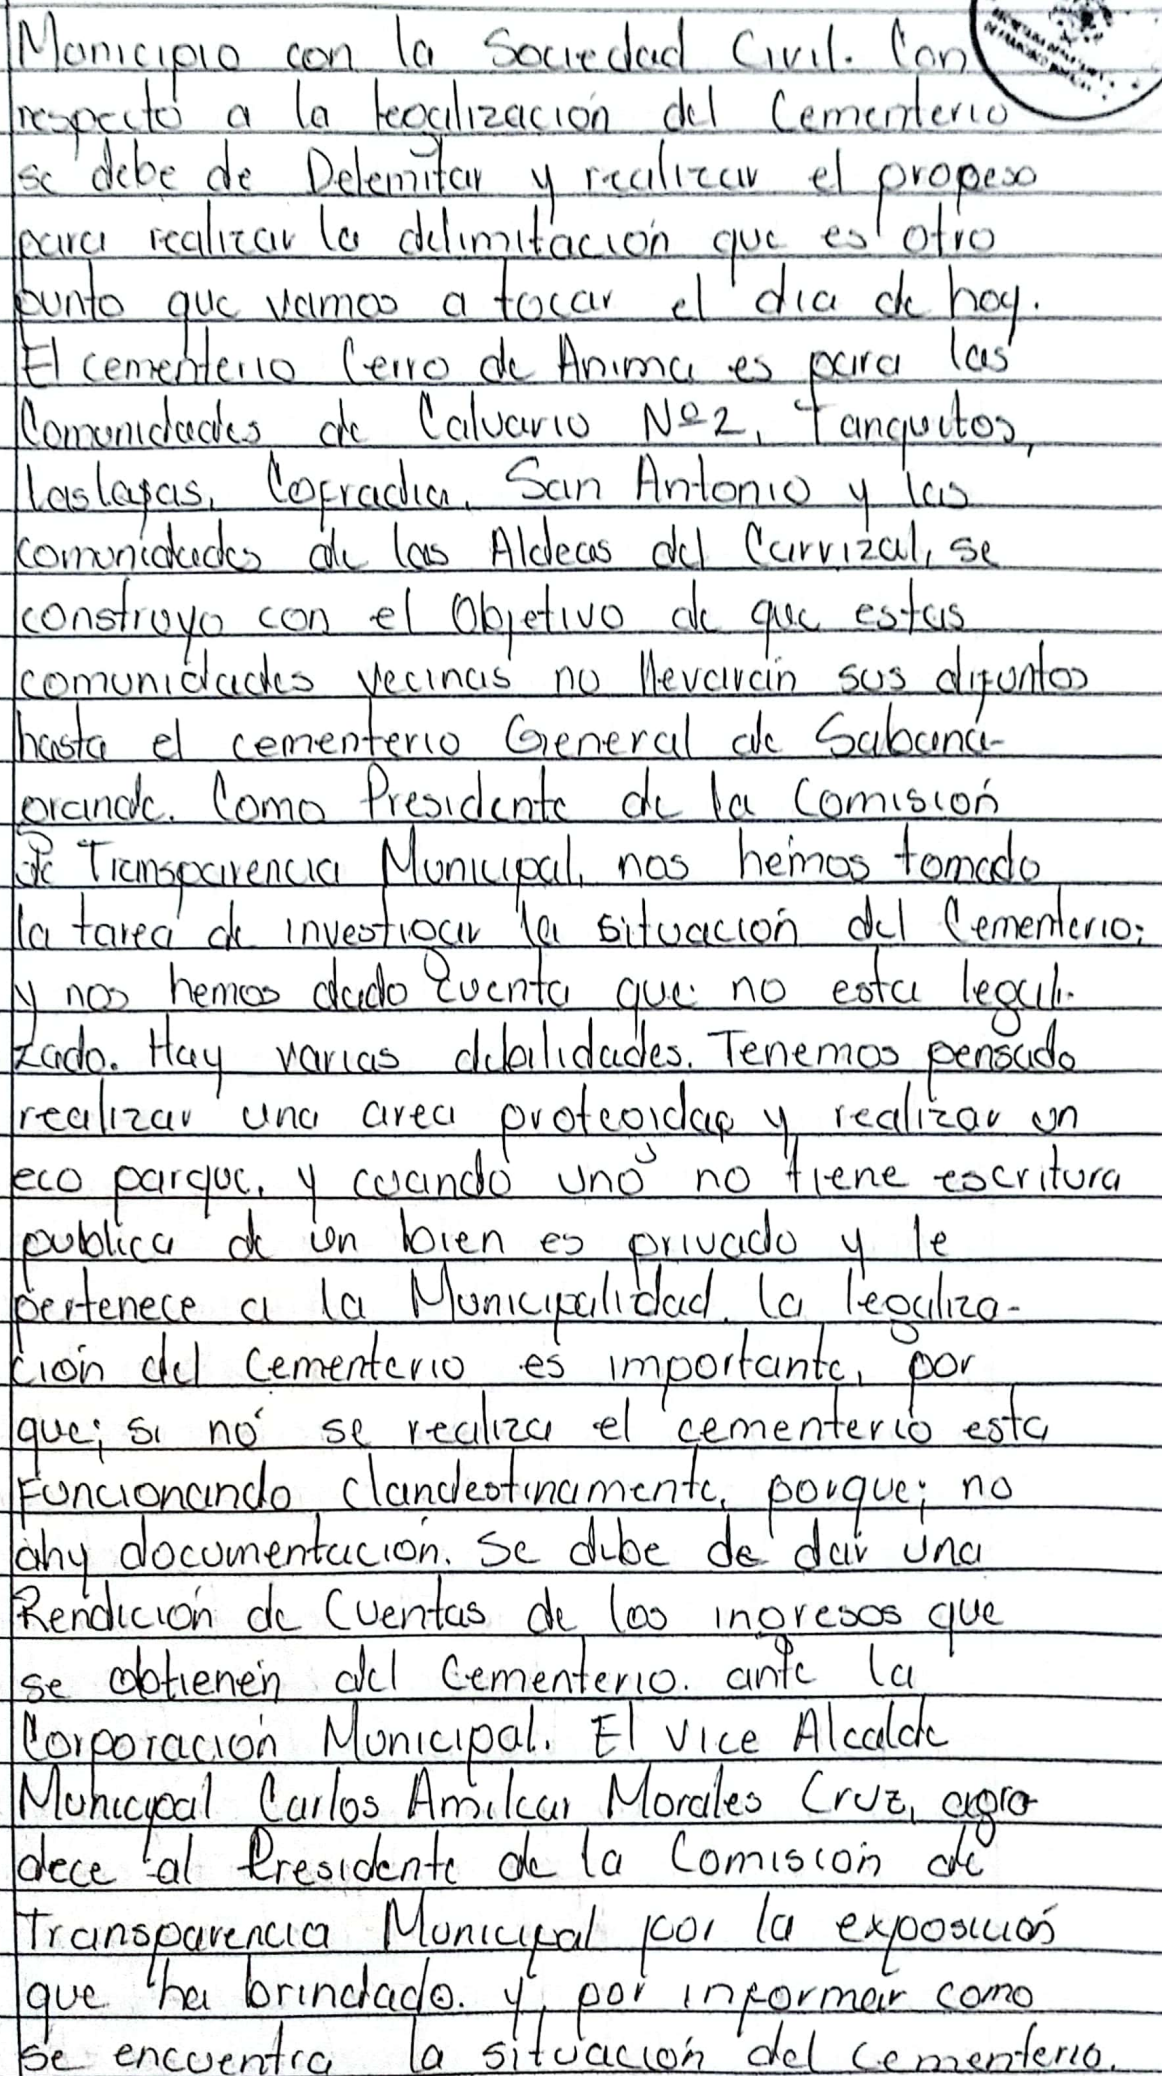 Municipio con la Sociedad Civil. Con
respecto a la legalización del Cementerio
se debe de Delemitar y realizar el propeso
para realizar la delimitación que es otro
punto que vamos a tocar el dia de hoy.
El cementerio Cerro de Anima es para las
Comunidades de Calvario Nº2, Tanquitos,
Laslajas, Cofradia, San Antonio y las
comunidades de las Aldeas del Carrizal, se
construyo con el Objetivo de que estas
comunidades vecinas no llevarán sus difuntos
hasta el cementerio General de Sabana-
grande. Como Presidente de la Comisión
de Transparencia Municipal, nos hemos tomado
la tarea de investigar la situación del Cementerio;
y nos hemos dado Cuenta que no esta legali-
zado. Hay varias debilidades. Tenemos pensado
realizar una area protegidap y realizar un
eco parque, y cuando uno no tiene escritura
publica de un bien es privado y le
pertenece a la Municipalidad. la legaliza-
ción del Cementerio es importante, por
que; si no se realiza el cementerio esta
Funcionando clandestinamente, porque; no
ahy documentación. Se debe de dar una
Rendición de Cuentas de los ingresos que
se obtienen del Cementerio. ante la
Corporación Municipal. El Vice Alcalde
Municipal Carlos Amilcar Morales Cruz, agra-
dece al Presidente de la Comisión de
Transparencia Municipal por la exposición
que ha brindado. y, por informar como
se encuentra la situación del cementerio.